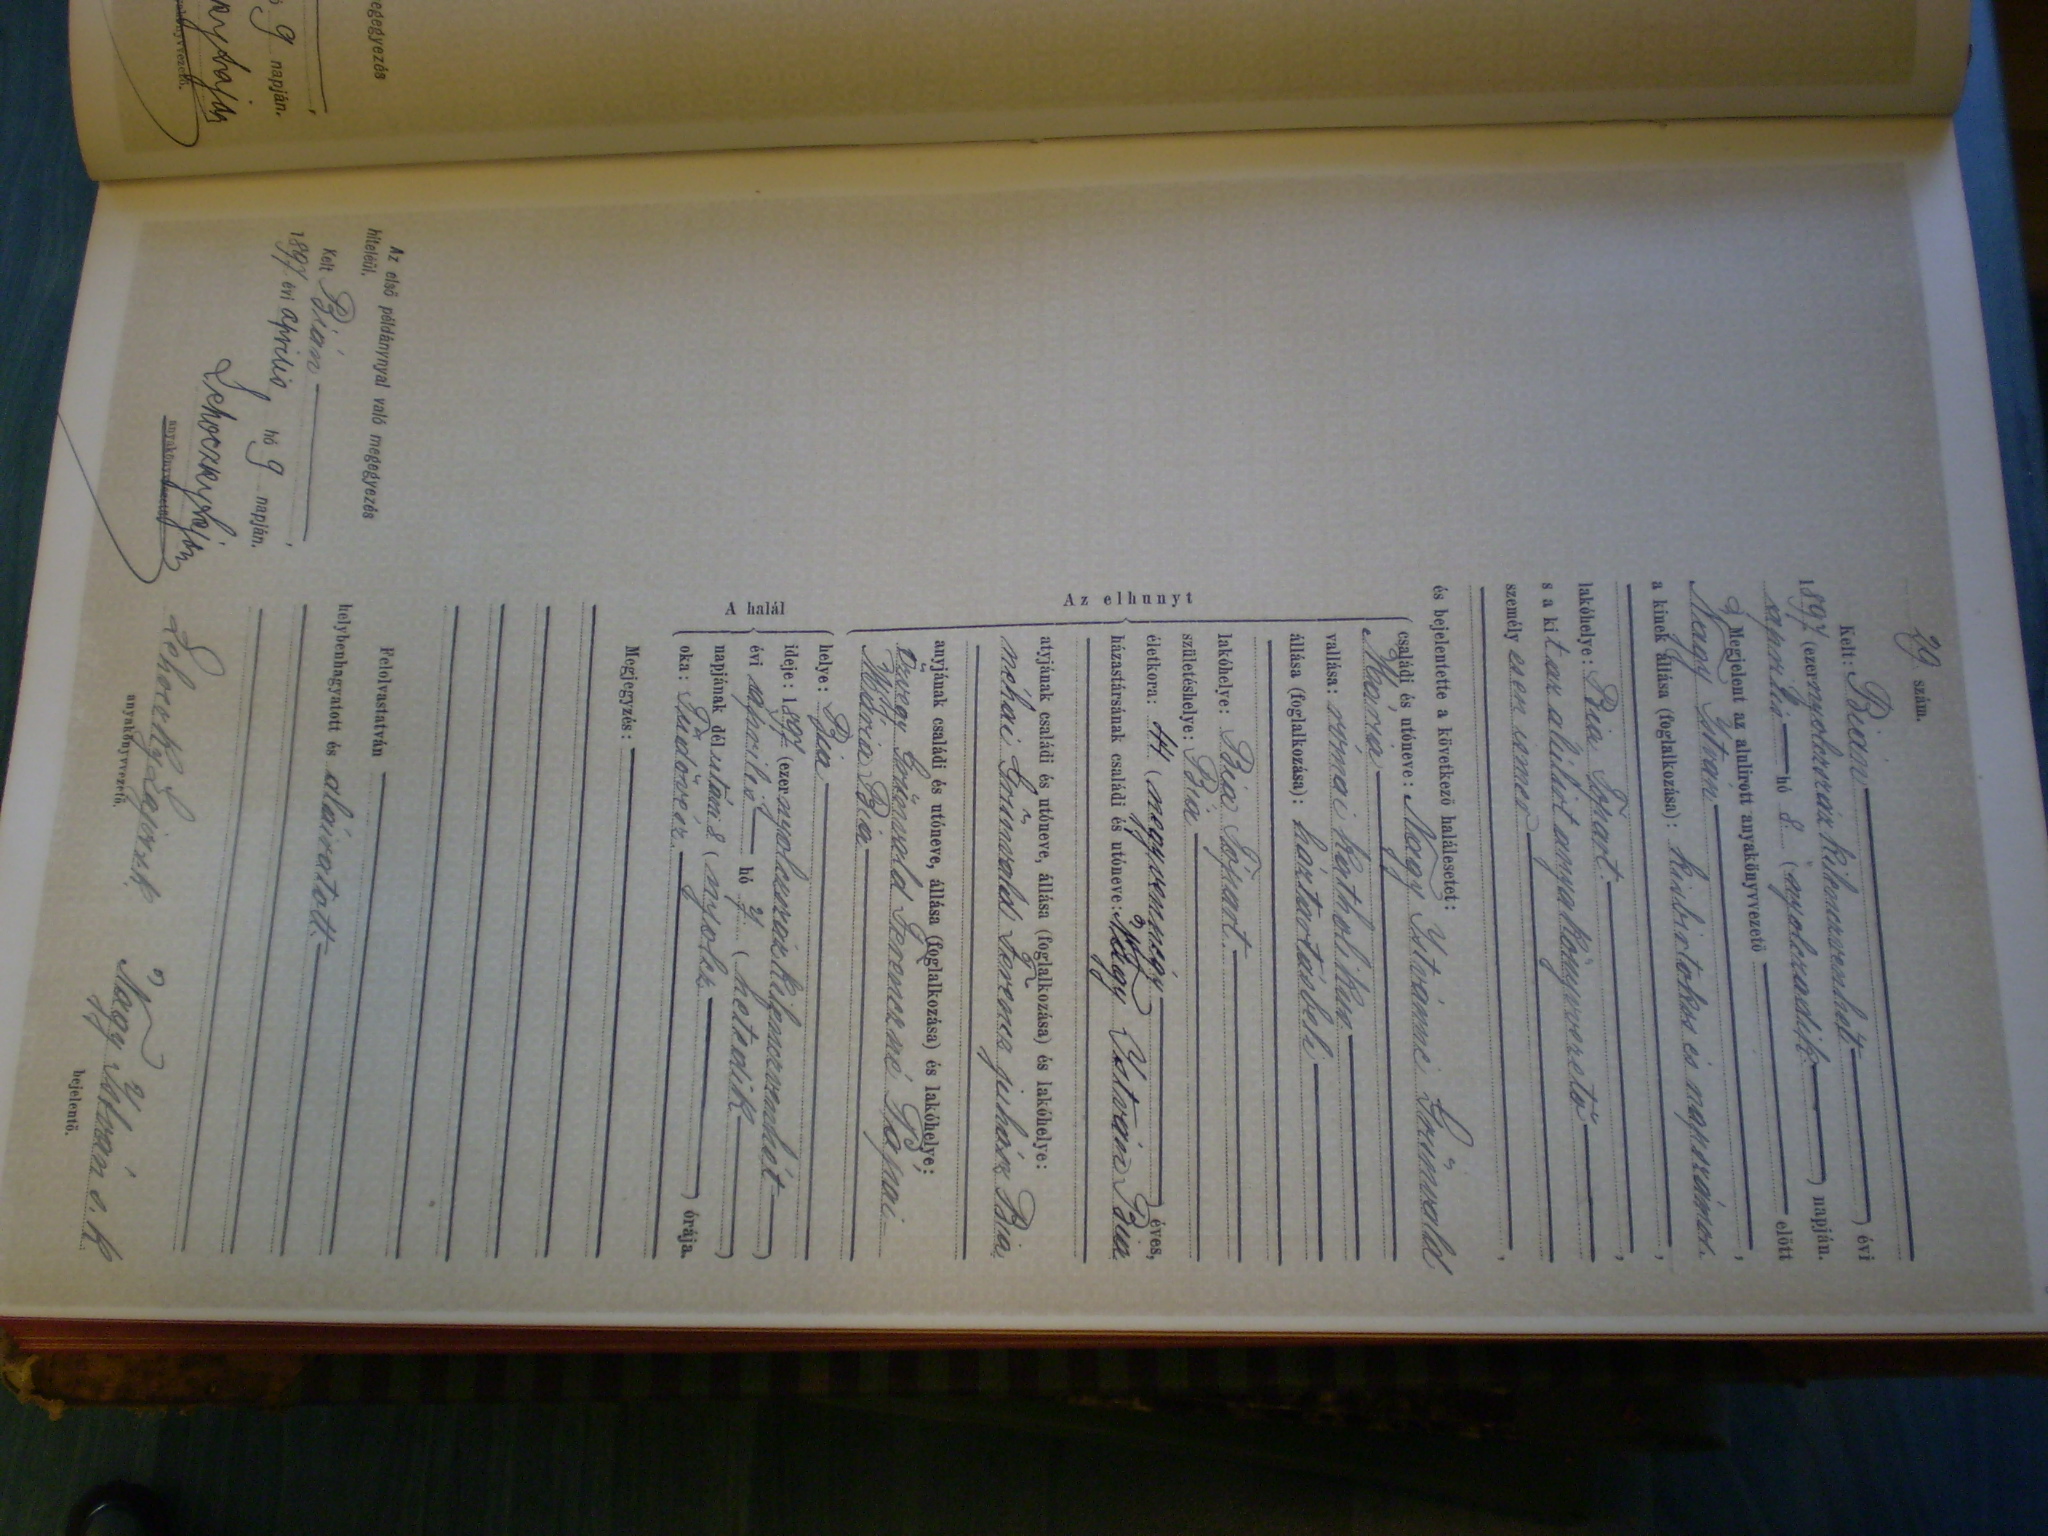 29. szám.
Kelt: Bián
1897 (ezernyolczszázkilenczvenhét) évi
április hó 8. (nyolczadik) napján.
Megjelent az alulirott anyakönyvvezető előtt
Nagy István,
a kinek állása (foglalkozása): kisbirtokos és napszámos,
lakóhelye: Bia Tópart,
s a kit az alulírt anyakönyvvezető
személyesen ismer,
és bejelentette a következő halálesetet:
Az elhunyt
családi és utóneve: Nagy Istvánné Grünvald
Mária
vallása: római katholikus
állása (foglalkozása): háztartásbeli
lakóhelye: Bia Tópart.
születéshelye: Bia
életkora: 44 (negyvennégy) éves,
házastársának családi és utóneve: Nagy István Bia
atyjának családi és utóneve, állása (foglalkozása) és lakóhelye:
néhai Grünvald Ferencz juhász Bia
anyjának családi és utóneve, állása (foglalkozása) és lakóhelye:
özvegy Grünvald Ferenczné
Mária Bia
A halál
helye: Bia
ideje: 1897 (ezernyolczszázkilenczvenhét)
évi április hó 7. (hetedik)
napjának délutáni 8 (nyolcz) órája.
oka: Tüdővész
Megjegyzés:
Felolvastatván
helybenhagyatott és aláiratott.
Lehoczky Lajos s. k.
anyakönyvvezető.
Nagy István s. k.
bejelentő.
Az első példánynyal való megegyezés
hiteléül.
Kelt Bián,
1897 évi április hó 9 napján.
Lehoczky Lajos
anyakönyvvezető
megegyezés
9 napján.